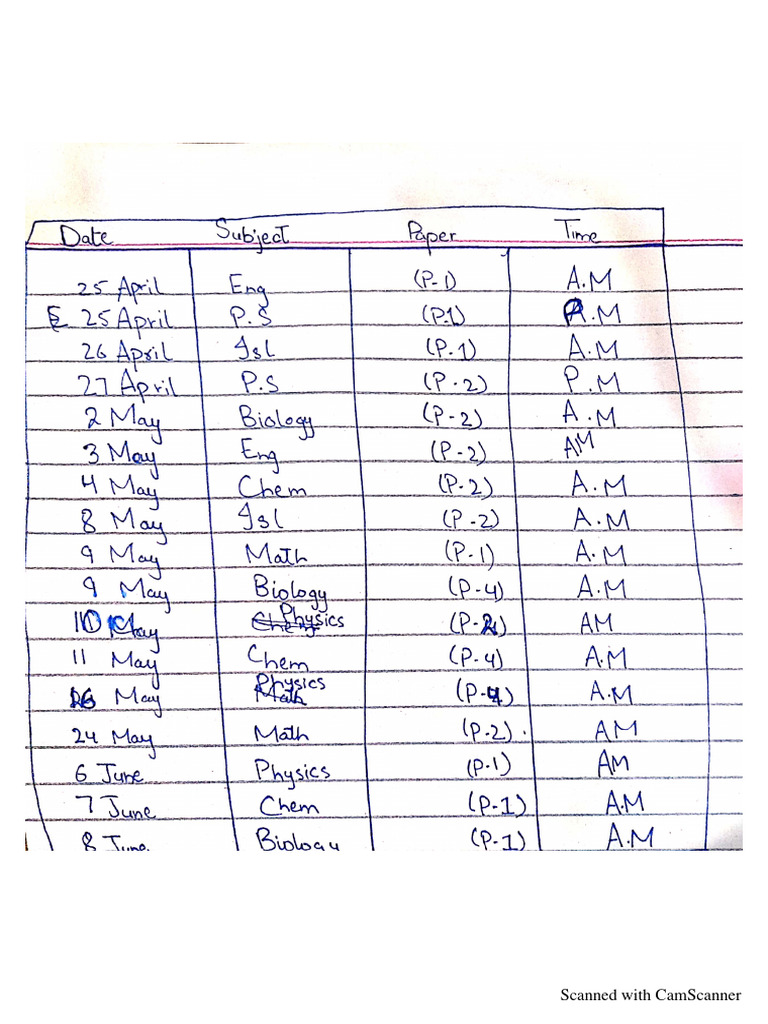 Date Subject Paper Time
25 April Eng (P-1) A.M
25 April P.S (P.1) P.M
26 April Isl (P.1) A.M
27 April P.S (P.2) P.M
2 May Biology (P-2) A.M
3 May Eng (P-2) AM
4 May Chem (P-2) A.M
8 May Isl (P-2) A.M
9 May Math (P-1) A.M
9 May Biology (P-4) A.M
10 May Physics (P-2) AM
11 May Chem (P-4) A.M
16 May Physics (P-4) A.M
24 May Math (P-2). AM
6 June Physics (P-1) AM
7 June Chem (P-1) A.M
8 June Biology (P-1) A.M
Scanned with CamScanner